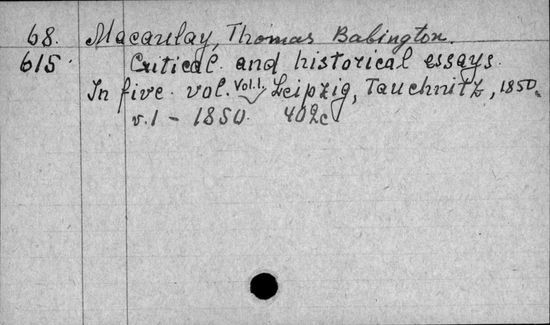 68. Macaulay, Thomas Babington.
615. Critical and historical essays.
In five vol. Vol.1. Leipzig, Tauchnitz, 1850.
v.1 - 1850. 402c